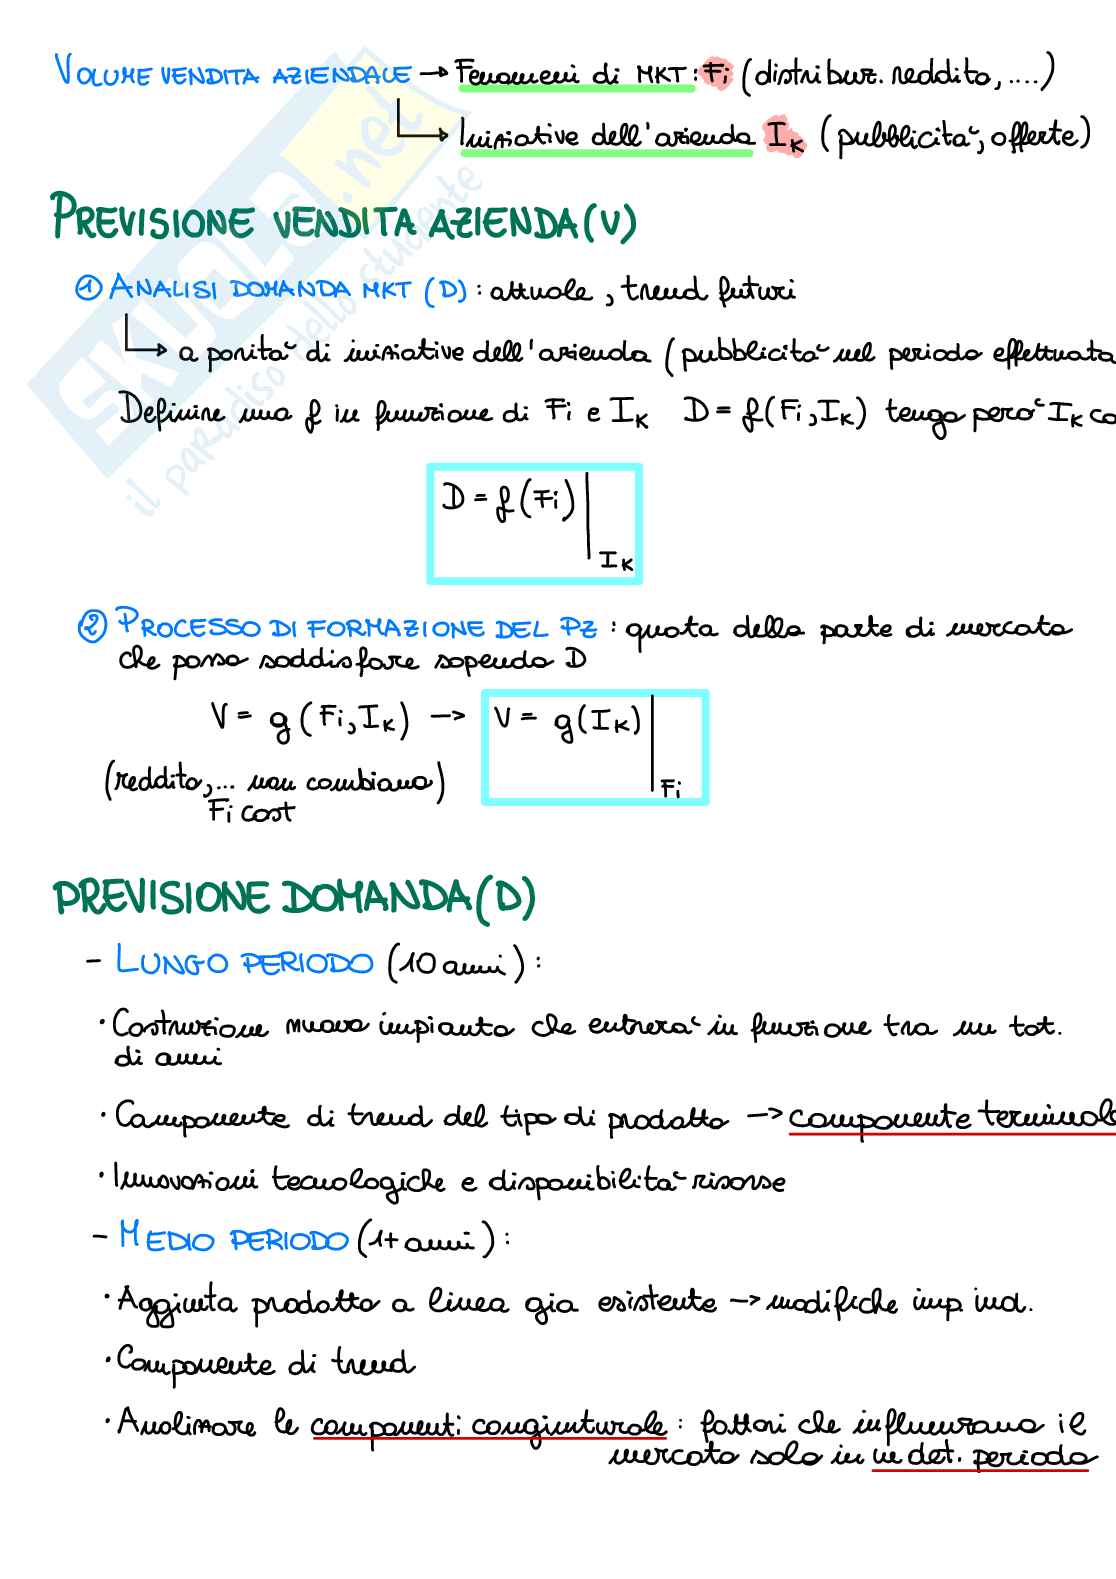 VOLUME VENDITA AZIENDALE → Fenomeni di MKT: Fi (distribuz. reddito, ....)
Iniziative dell'azienda IK (pubblicità, offerte)
PREVISIONE VENDITA AZIENDA (V)
① ANALISI DOMANDA MKT (D): attuale, trend futuri
a parità di iniziative dell'azienda (pubblicità nel periodo effettuata
Definire una f in funzione di Fi e IK D = f(Fi, IK) tengo però IK co
D = f(Fi) | IK
② PROCESSO DI FORMAZIONE DEL PZ: quota della parte di mercato
che posso soddisfare sapendo D
V = g (Fi, IK) → V = g(IK) | Fi
(reddito, ... non cambiano)
Fi cost
PREVISIONE DOMANDA (D)
- LUNGO PERIODO (10 anni):
· Costruzione nuovo impianto che entrerà in funzione tra un tot.
di anni
· Componente di trend del tipo di prodotto → componente terminale
· Innovazioni tecnologiche e disponibilità risorse
- MEDIO PERIODO (1+ anni):
· Aggiunta prodotto a linea gia esistente → modifiche imp. ind.
· Componente di trend
· Analizzare le componenti congiunturale: fattori che influenzano il
mercato solo in un det. periodo
SKUOLA.net
il paradiso dello studente